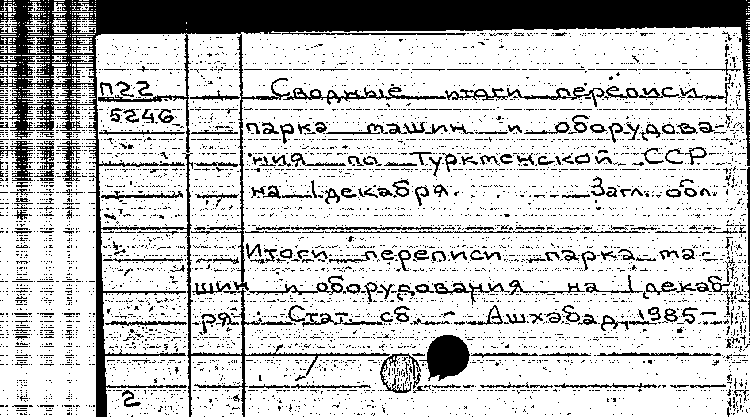 П22 Сводные итоги переписи
5246 парка машин и оборудова-
ния по Туркменской ССР
на 1 декабря. Загл. обл.
Итоги переписи парка ма-
шин и оборудования на 1 декаб-
ря: Стат. сб. - Ашхабад, 1985-
2